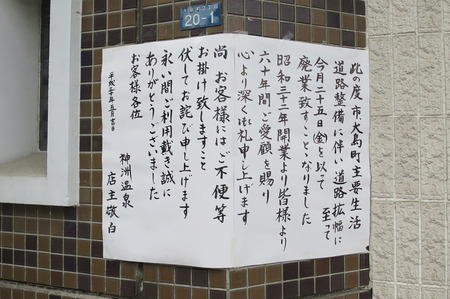 20-1
此の度市大島町主要生活
道路整備に伴い道路拡幅に
至って
今月二十五日(金)を以て
廃業致すことなりました
昭和三十二年開業より皆様より
六十年間ご愛顧を賜り
心より深く御礼申し上げます
尚 お客様にはご不便等
お掛け致しますこと
伏してお詫び申し上げます
永い間ご利用戴き誠に
ありがとうございました
お客様各位
神洲温泉
店主敬白